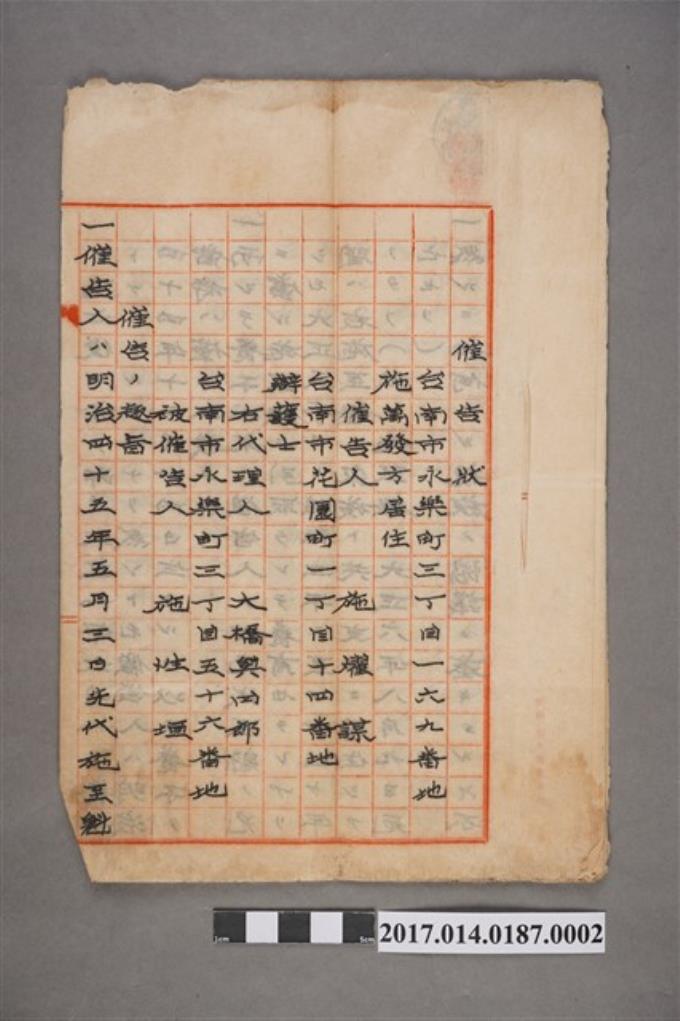 催告狀
台南市永樂町三丁目一六九番地
施萬發方居住
催告人 施燿謀
台南市花園町一丁目十四番地
辯護士
右代理人 大橋奧四郎
台南市永樂町三丁目五十六番地
被催告人 施性垣
催告ノ趣旨
一催告人ハ明治四十五年五月三日先代施至魁
1cm 5cm
2017.014.0187.0002